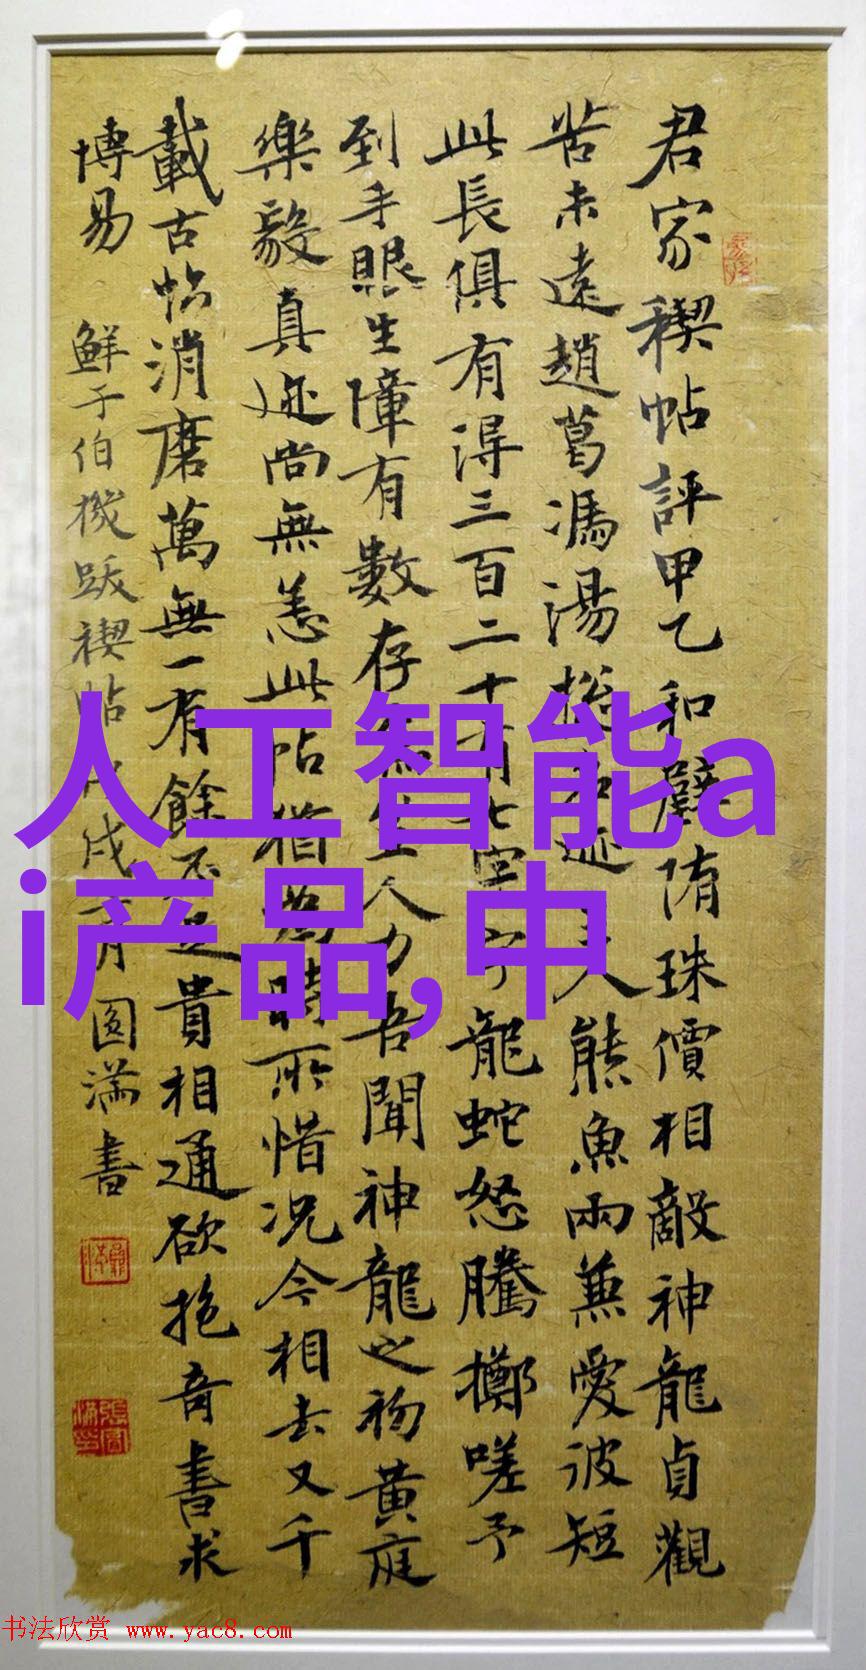 君家稧帖評甲乙和璧隋珠價相敵神龍貞觀
苦未遠趙葛馮湯揔名迹人熊魚兩兼愛彼短
此長俱有得三百二十有七字龍蛇怒騰擲嗟予
到手眼生障有數存焉人力吾聞神龍之初黃庭
樂毅真迹尚無恙此帖猶為時所惜況今相去又千
載古帖消磨萬無一有餘不足貴相通欲抱奇書求
博易 鮮于伯機跋禊帖戌月圓滿書
人工智能a
i产品,中
书法欣赏 www.yac8.com